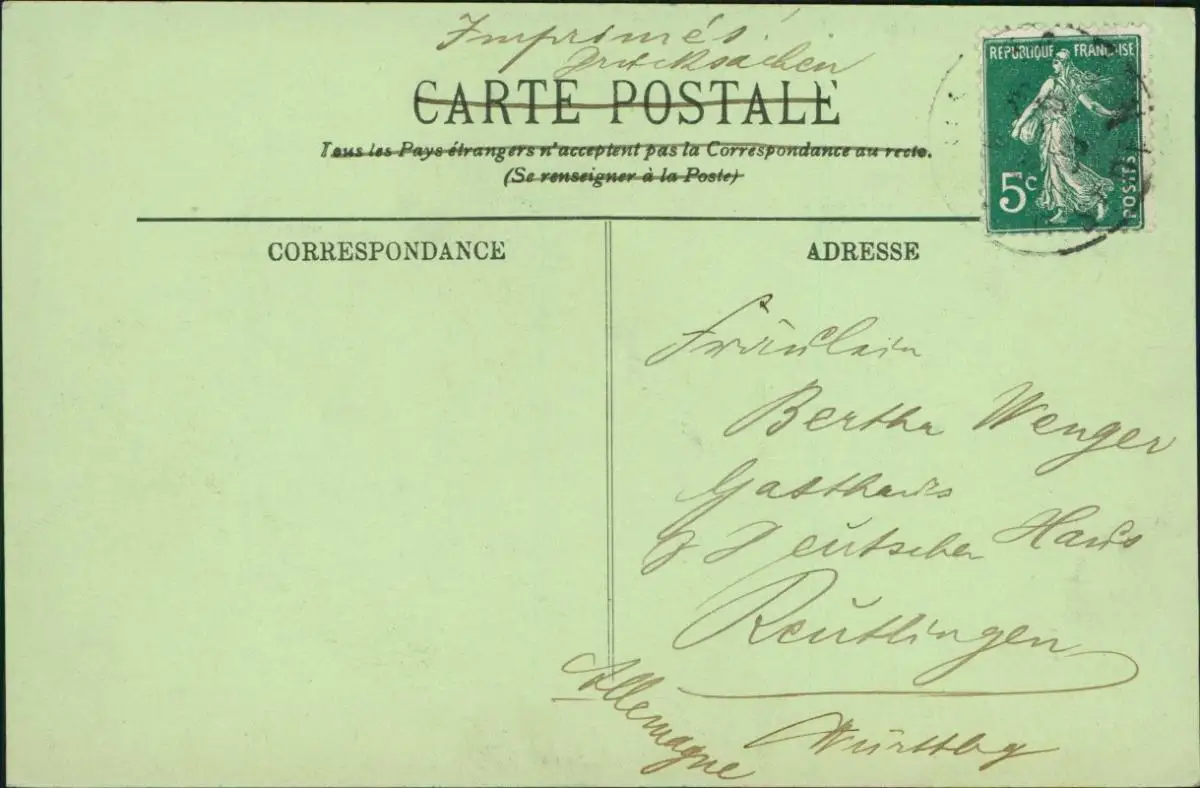 Imprimés.
Drucksachen
CARTE POSTALE
Tous les Pays étrangers n'acceptent pas la Correspondance au recto.
(Se renseigner à la Poste)
REPUBLIQUE FRANÇAISE
5c
POSTES
CORRESPONDANCE
ADRESSE
Fräulein
Bertha Wenger
Gasthaus
z. Deutschen Haus
Reutlingen
Allemagne
Württbg